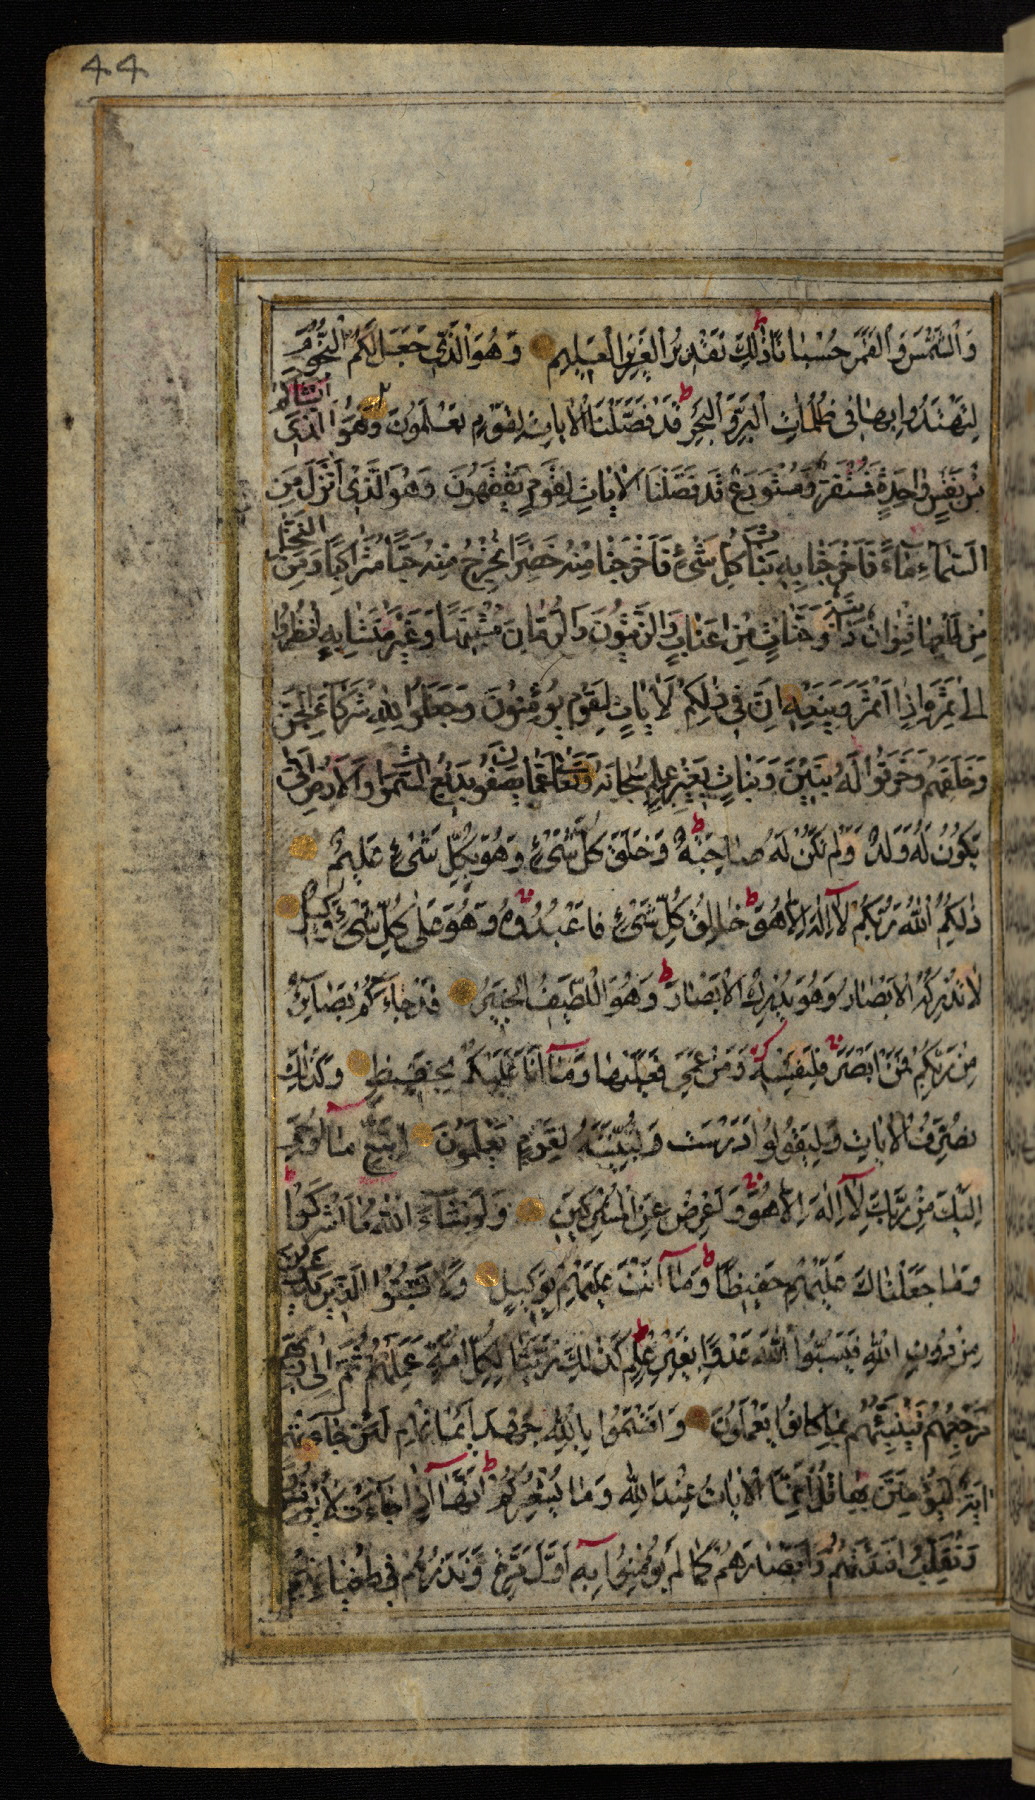 44
وَالشَّمْسَ وَالْقَمَرَ حُسْبَانًا ذٰلِكَ تَقْدِيرُ الْعَزِيزِ الْعَلِيمِ وَهُوَ الَّذِي جَعَلَ لَكُمُ النُّجُومَ
لِتَهْتَدُوا بِهَا فِي ظُلُمَاتِ الْبَرِّ وَالْبَحْرِ قَدْ فَصَّلْنَا الْاٰيَاتِ لِقَوْمٍ يَعْلَمُونَ وَهُوَ الَّذِي اَنْشَاَكُمْ
مِنْ نَفْسٍ وَاحِدَةٍ فَمُسْتَقَرٌّ وَمُسْتَوْدَعٌ قَدْ فَصَّلْنَا الْاٰيَاتِ لِقَوْمٍ يَفْقَهُونَ وَهُوَ الَّذِي اَنْزَلَ مِنَ
السَّمَاءِ مَاءً فَاَخْرَجْنَا بِهِ نَبَاتَ كُلِّ شَيْءٍ فَاَخْرَجْنَا مِنْهُ خَضِرًا نُخْرِجُ مِنْهُ حَبًّا مُتَرَاكِبًا وَمِنَ النَّخْلِ
مِنْ طَلْعِهَا قِنْوَانٌ دَانِيَةٌ وَجَنَّاتٍ مِنْ اَعْنَابٍ وَالزَّيْتُونَ وَالرُّمَّانَ مُشْتَبِهًا وَغَيْرَ مُتَشَابِهٍ اُنْظُرُوا
اِلٰى ثَمَرِهِ اِذَا اَثْمَرَ وَيَنْعِهِ اِنَّ فِي ذٰلِكُمْ لَاٰيَاتٍ لِقَوْمٍ يُؤْمِنُونَ وَجَعَلُوا لِلّٰهِ شُرَكَاءَ الْجِنَّ
وَخَلَقَهُمْ وَخَرَقُوا لَهُ بَنِينَ وَبَنَاتٍ بِغَيْرِ عِلْمٍ سُبْحَانَهُ وَتَعَالٰى عَمَّا يَصِفُونَ بَدِيعُ السَّمٰوَاتِ وَالْاَرْضِ اَنّٰى
يَكُونُ لَهُ وَلَدٌ وَلَمْ تَكُنْ لَهُ صَاحِبَةٌ وَخَلَقَ كُلَّ شَيْءٍ وَهُوَ بِكُلِّ شَيْءٍ عَلِيمٌ
ذٰلِكُمُ اللّٰهُ رَبُّكُمْ لَا اِلٰهَ اِلَّا هُوَ خَالِقُ كُلِّ شَيْءٍ فَاعْبُدُوهُ وَهُوَ عَلٰى كُلِّ شَيْءٍ وَكِيلٌ
لَا تُدْرِكُهُ الْاَبْصَارُ وَهُوَ يُدْرِكُ الْاَبْصَارَ وَهُوَ اللَّطِيفُ الْخَبِيرُ قَدْ جَاءَكُمْ بَصَائِرُ
مِنْ رَبِّكُمْ فَمَنْ اَبْصَرَ فَلِنَفْسِهِ وَمَنْ عَمِيَ فَعَلَيْهَا وَمَا اَنَا عَلَيْكُمْ بِحَفِيظٍ وَكَذٰلِكَ
نُصَرِّفُ الْاٰيَاتِ وَلِيَقُولُوا دَرَسْتَ وَلِنُبَيِّنَهُ لِقَوْمٍ يَعْلَمُونَ اِتَّبِعْ مَا اُوحِيَ
اِلَيْكَ مِنْ رَبِّكَ لَا اِلٰهَ اِلَّا هُوَ وَاَعْرِضْ عَنِ الْمُشْرِكِينَ وَلَوْ شَاءَ اللّٰهُ مَا اَشْرَكُوا
وَمَا جَعَلْنَاكَ عَلَيْهِمْ حَفِيظًا وَمَا اَنْتَ عَلَيْهِمْ بِوَكِيلٍ وَلَا تَسُبُّوا الَّذِينَ يَدْعُونَ
مِنْ دُونِ اللّٰهِ فَيَسُبُّوا اللّٰهَ عَدْوًا بِغَيْرِ عِلْمٍ كَذٰلِكَ زَيَّنَّا لِكُلِّ اُمَّةٍ عَمَلَهُمْ ثُمَّ اِلٰى رَبِّهِمْ
مَرْجِعُهُمْ فَيُنَبِّئُهُمْ بِمَا كَانُوا يَعْمَلُونَ وَاَقْسَمُوا بِاللّٰهِ جَهْدَ اَيْمَانِهِمْ لَئِنْ جَاءَتْهُمْ
اٰيَةٌ لَيُؤْمِنُنَّ بِهَا قُلْ اِنَّمَا الْاٰيَاتُ عِنْدَ اللّٰهِ وَمَا يُشْعِرُكُمْ اَنَّهَا اِذَا جَاءَتْ لَا يُؤْمِنُونَ
وَنُقَلِّبُ اَفْئِدَتَهُمْ وَاَبْصَارَهُمْ كَمَا لَمْ يُؤْمِنُوا بِهِ اَوَّلَ مَرَّةٍ وَنَذَرُهُمْ فِي طُغْيَانِهِمْ